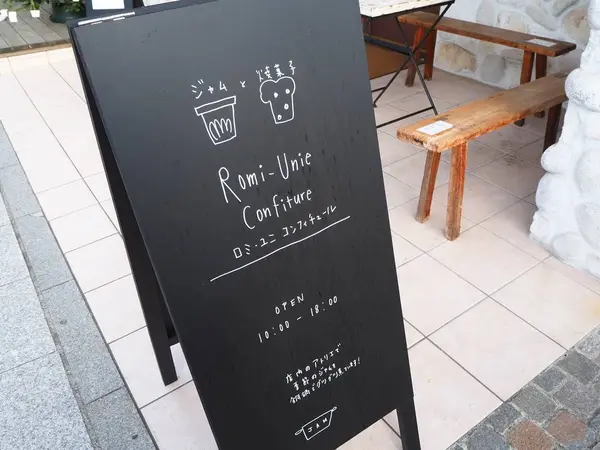 ジャム × 焼菓子
Romi-Unie
Confiture
ロミ・ユニ コンフィチュール
OPEN
10:00 - 18:00
店内のアトリエで
季節のジャムを
銅鍋でグツグツ煮ています!
JAM